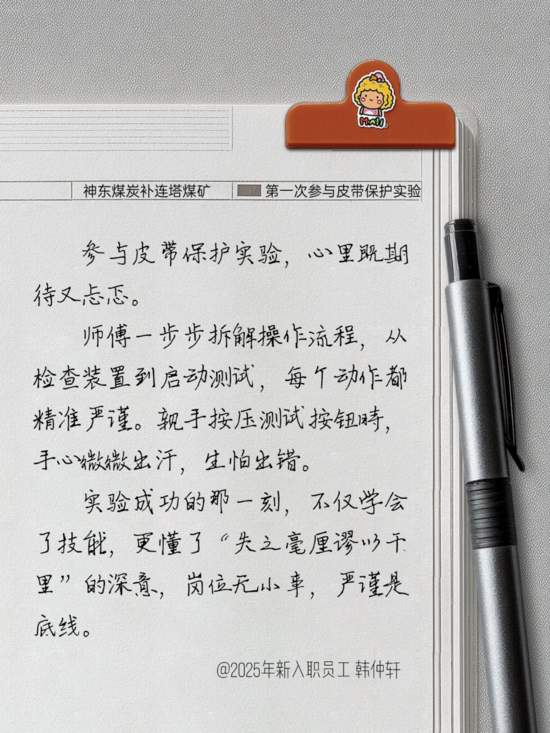 神东煤炭补连塔煤矿
第一次参与皮带保护实验
参与皮带保护实验，心里既期
待又忐忑。
师傅一步步拆解操作流程，从
检查装置到启动测试，每个动作都
精准严谨。亲手按压测试按钮时，
手心微微出汗，生怕出错。
实验成功的那一刻，不仅学会
了技能，更懂了“失之毫厘谬以千
里”的深意，岗位无小事，严谨是
底线。
@2025年新入职员工 韩仲轩